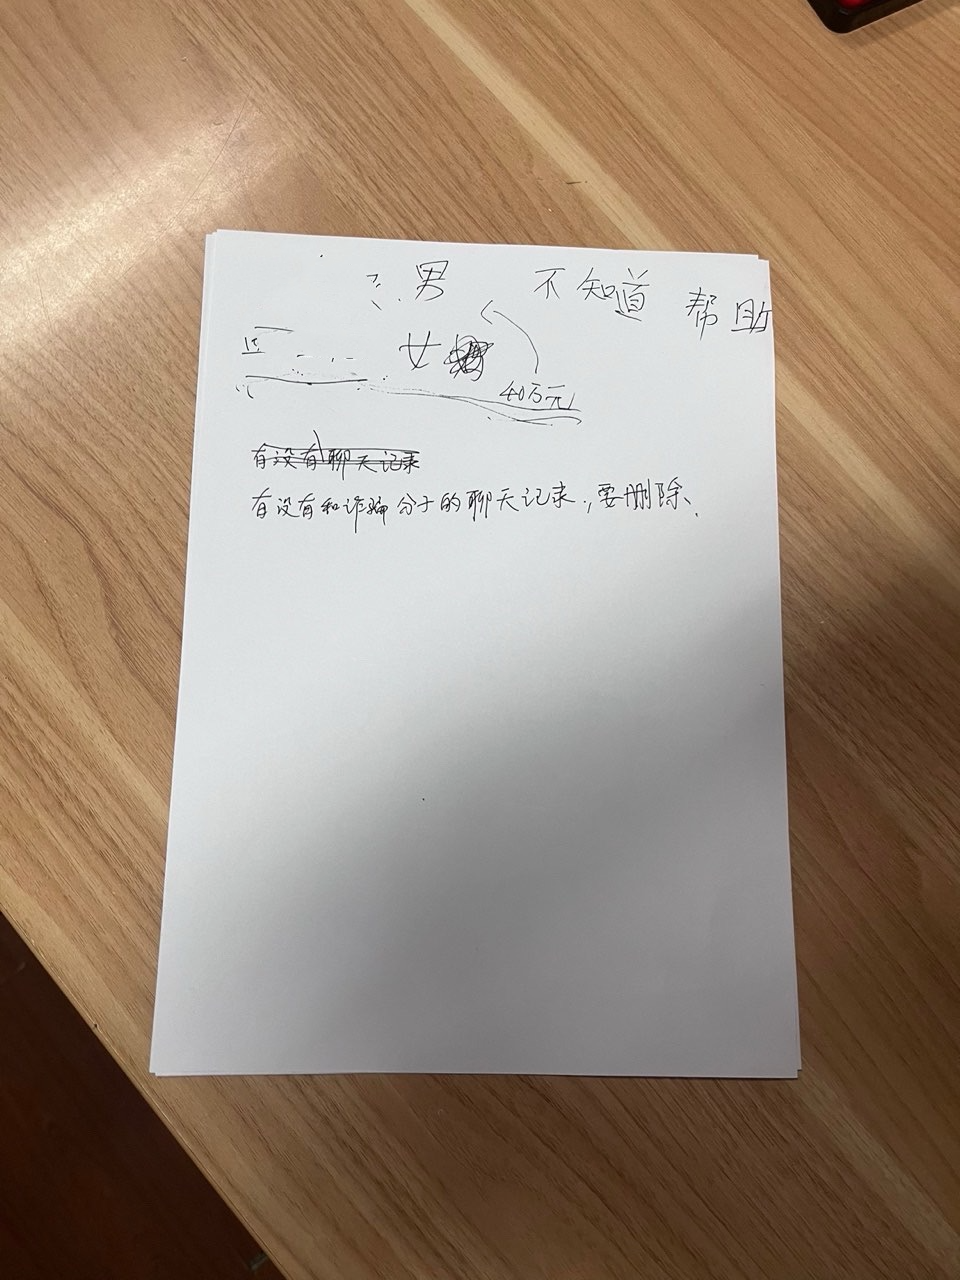 男 不知道 帮助
女
40万元
有没有聊天记录
有没有和诈骗分子的聊天记录，要删除、